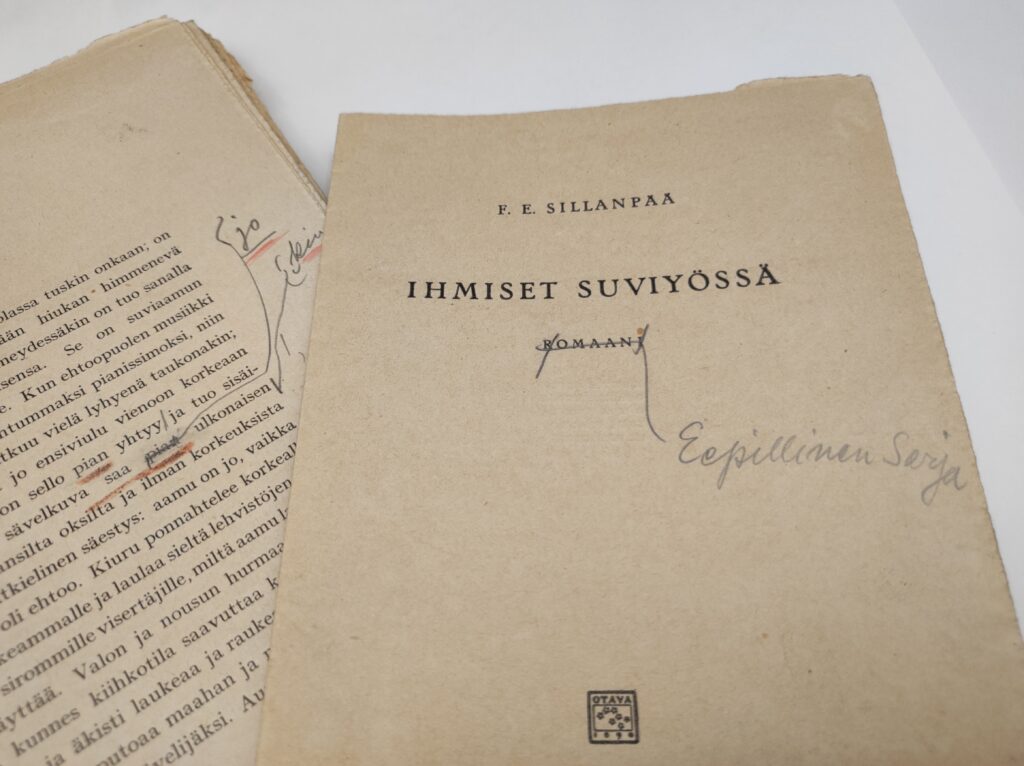 jo
olassa tuskin onkaan; on
hiukan himmenevä
neydessäkin on tuo sanalla
sensa. Se on suviaamun
e. Kun ehtoopuolen musiikki
ntummaksi pianissimoksi, niin
tkuu vielä lyhyenä taukonakin;
jo ensiviulu vienoon korkeaan
on sello pian yhtyy ja tuo sisäi-
sävelkuva saa pian ulkonaisen
ansilta oksilta ja ilman korkeuksista
tkielinen säestys: aamu on jo, vaikka
oli ehtoo. Kiuru ponnahtelee korkeal
keammalle ja laulaa sieltä lehvistöjen
sirommille visertäjille, miltä aamul
äyttää. Valon ja nousun hurmaa
kunnes kiihkotila saavuttaa k
ja äkisti laukeaa ja rauke
putoaa maahan ja
velijäksi. Au
F. E. SILLANPÄÄ
IHMISET SUVIYÖSSÄ
ROMAANI
Eepillinen Sarja
OTAVA
1890